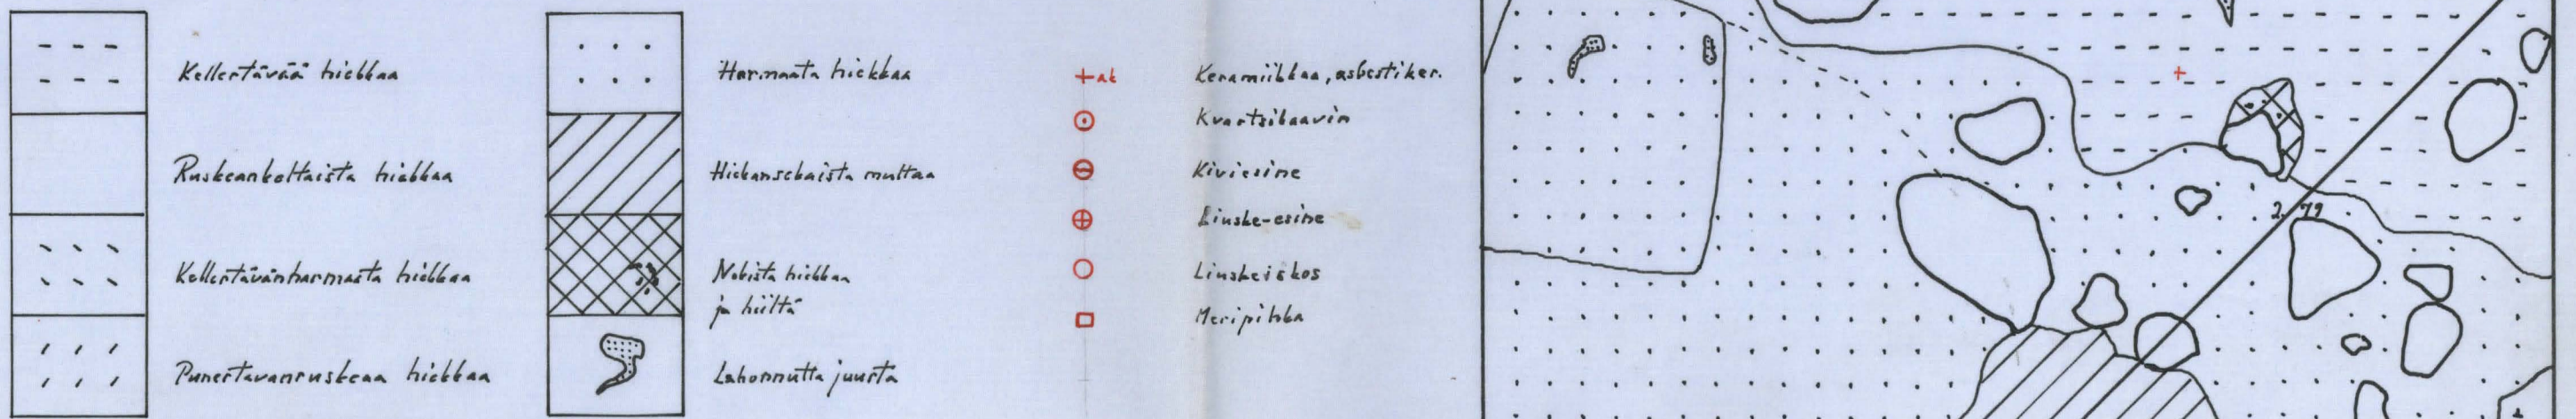 Kellertävää hiekkaa
Ruskeankeltaista hiekkaa
Kellertävänharmasta hiekkaa
Punertavanruskeaa hiekkaa
Harmaata hiekkaa
Hiekansekaista multaa
Nokista hiekkaa
ja hiiltä
Lahonnutta juurta
+ak Keramiikkaa, asbestiker.
Kvartsikaavin
Kiviesine
Liuske-esine
Liuskeiskos
Meripihka
2.79